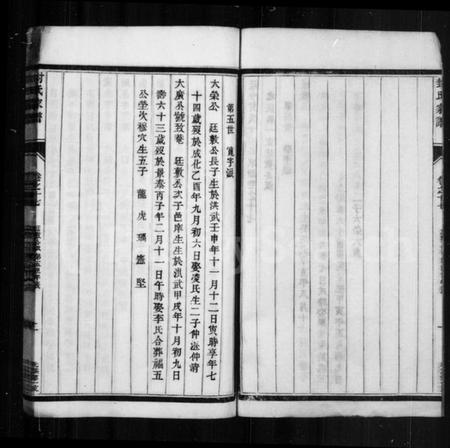 第五世 寬字派
大榮公 廷敦公長子生於洪武壬申年十一月十二日寅時享年七
十四歲歿於成化乙酉年九月初六日娶淩氏生二子仲滋仲清
大廣公號致菴 廷敦公次子邑庠生生於洪武甲戌年十月初九日
壽六十三歲歿於景泰丙子年二月十一日午時娶李氏合葬福五
公塋次極穴生五子 龍 虎 瑀 憲 堅
封氏家譜
卷之十七